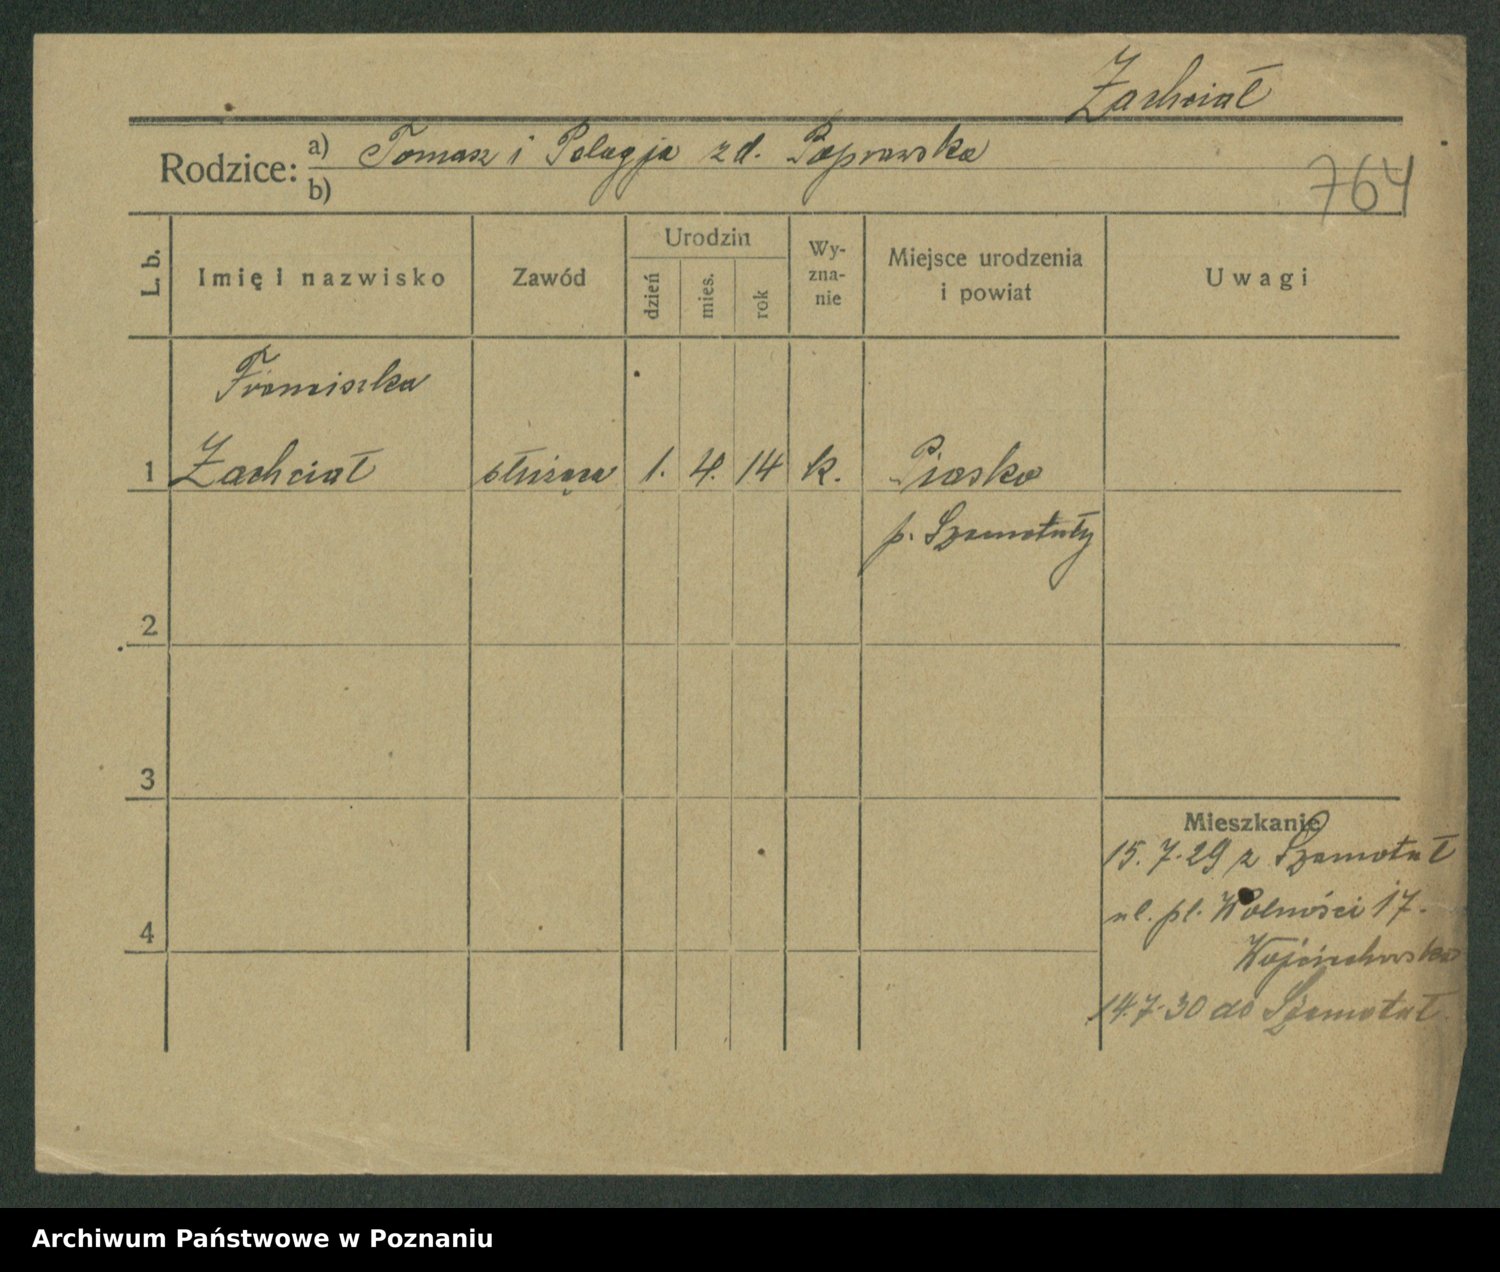 Zachciał
Rodzice: a) Tomasz i Pelagja zd. Poprawska
b)
764
L. b.
Imię i nazwisko
Zawód
Urodzin
dzień
mies.
rok
Wy-
zna-
nie
Miejsce urodzenia
i powiat
Uwagi
Franciszka
1 Zachciał służąca 1. 4. 14 k. Piasko
p. Szamotuły
2
3
Mieszkanie
15. 7. 29 z Szamotuł
ul. pl. Wolności 17.
4
Wojciechowska
14.7.30 do Szamotuł.
Archiwum Państwowe w Poznaniu